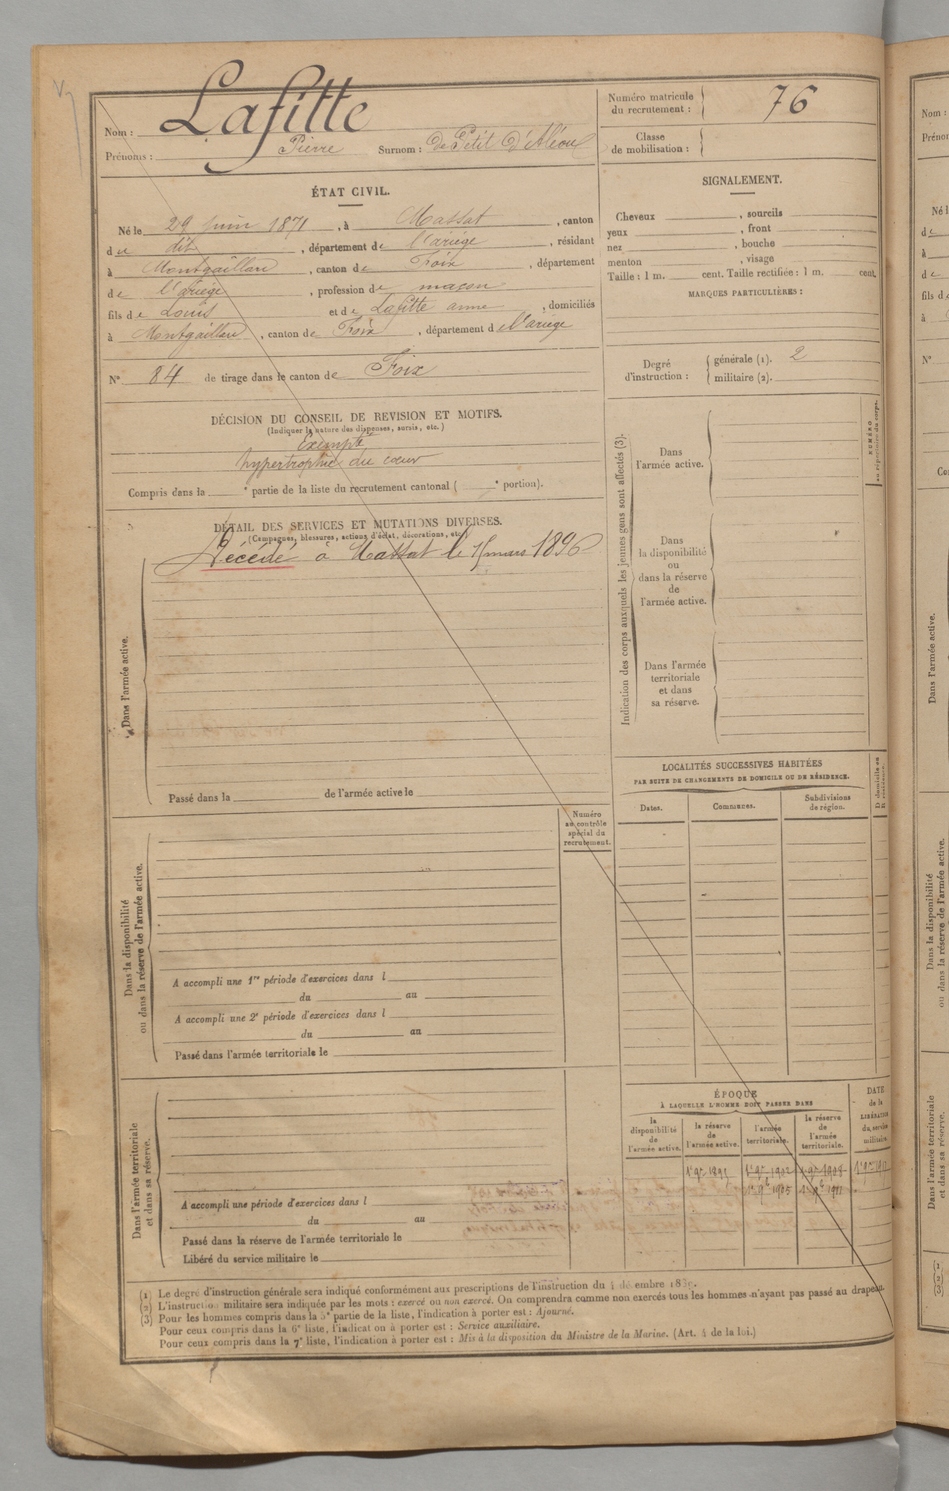 Nom : Lafitte
Prénoms : Pierre Surnom : de Petit d'Aléou
Numéro matricule du recrutement : 76
Classe de mobilisation :
ÉTAT CIVIL.
Né le 29 juin 1871, à Massat, canton
de dit, département de l'ariège, résidant
à Montgaillard, canton de Foix, département
de l'ariège, profession de maçon
fils de Louis et de Lafitte anne, domiciliés
à Montgaillard, canton de Foix, département de l'ariège
N° 84 de tirage dans le canton de Foix
SIGNALEMENT.
Cheveux , sourcils
yeux , front
nez , bouche
menton , visage
Taille : 1 m. cent. Taille rectifiée : 1 m. cent.
MARQUES PARTICULIÈRES :
Degré d'instruction : générale (1). 2
militaire (2).
DÉCISION DU CONSEIL DE REVISION ET MOTIFS.
(Indiquer la nature des dispenses, sursis, etc.)
Exempté
hypertrophie du cœur
Compris dans la e partie de la liste du recrutement cantonal ( e portion).
DÉTAIL DES SERVICES ET MUTATIONS DIVERSES.
(Campagnes, blessures, actions d'éclat, décorations, etc.)
Décédé à Massat le 15 mars 1896
Dans l'armée active.
Passé dans la de l'armée active le
Numéro au contrôle spécial du recrutement.
Dans la disponibilité
ou dans la réserve de l'armée active.
A accompli une 1re période d'exercices dans l
du au
A accompli une 2e période d'exercices dans l
du au
Passé dans l'armée territoriale le
Dans l'armée territoriale
et dans sa réserve.
A accompli une période d'exercices dans l
du au
Passé dans la réserve de l'armée territoriale le
Libéré du service militaire le
Indication des corps auxquels les jeunes gens sont affectés (3).
Dans
l'armée active.
Dans
la disponibilité
ou
dans la réserve
de
l'armée active.
Dans l'armée
territoriale
et dans
sa réserve.
LOCALITÉS SUCCESSIVES HABITÉES
PAR SUITE DE CHANGEMENTS DE DOMICILE OU DE RÉSIDENCE.
Dates. Communes. Subdivisions de région.
ÉPOQUE
À LAQUELLE L'HOMME DOIT PASSER DANS
la disponibilité de l'armée active.
la réserve de l'armée active.
l'armée territoriale.
la réserve de l'armée territoriale.
DATE de la LIBÉRATION du service militaire.
(1) Le degré d'instruction générale sera indiqué conformément aux prescriptions de l'instruction du
(2) L'instruction militaire sera indiquée par les mots : exercé ou non exercé. On comprendra comme non exercés tous les hommes n'ayant pas passé au drapeau.
(3) Pour les hommes compris dans la 5e partie de la liste, l'indication à porter est : Ajourné.
Pour ceux compris dans la 6e liste, l'indication à porter est : Service auxiliaire.
Pour ceux compris dans la 7e liste, l'indication à porter est : Mis à la disposition du Ministre de la Marine. (Art. 4 de la loi.)